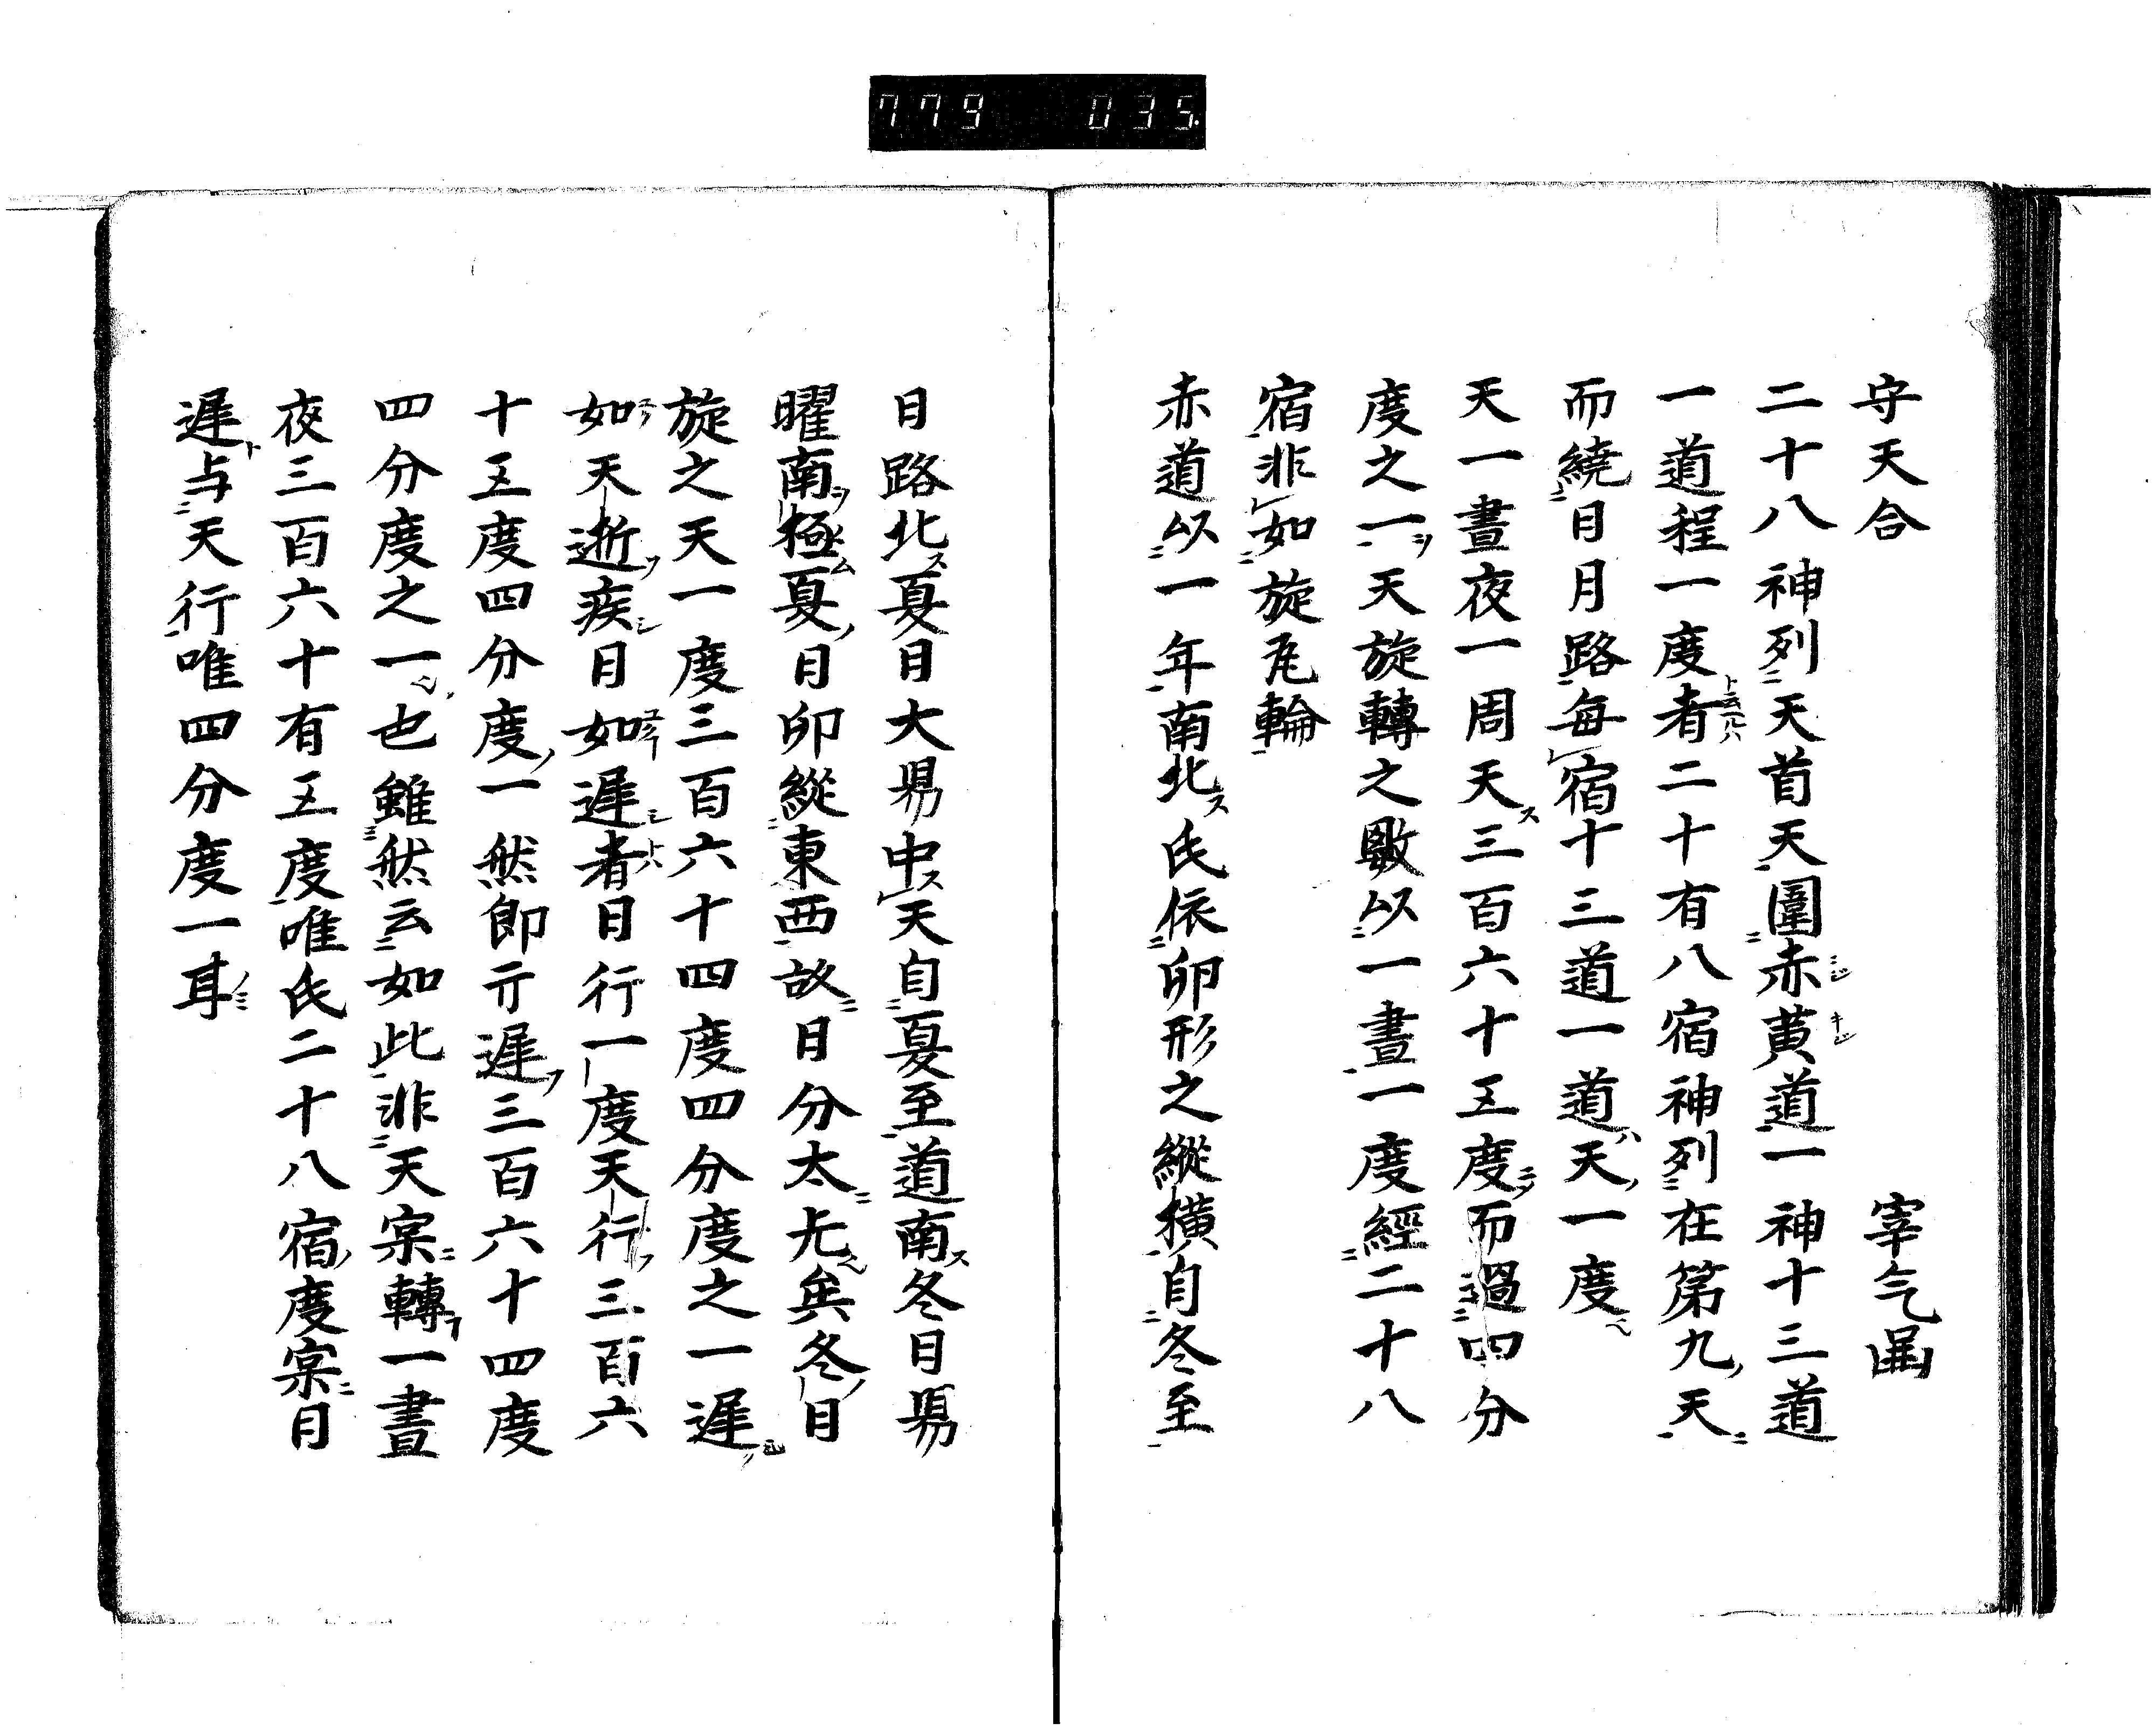 779 035
守天合 宰气畾
二十八神列天首天圍赤黄道一神十三道
一道程一度者二十有八宿神列在第九天
而繞日月路每宿十三道一道天一度
天一晝夜一周天三百六十五度而過四分
度之一天旋轉之數以一晝一度經二十八
宿非如旋瓦輪
赤道以一年南北氏依卯形之縱橫自冬至
日路北夏日大昜中天自夏至道南冬日昜
曜南極夏日卯縱東西故日分太尢矣冬日
旋之天一度三百六十四度四分度之一遲
如天逝疾日如遲者日行一度天行三百六
十五度四分度一然即亓遲三百六十四度
四分度之一也雖然云如此非天寀轉一晝
夜三百六十有五度唯氏二十八宿度寀日
遲与天行唯四分度一耳